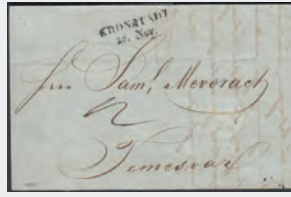 KRONSTADT
25. Nov.
Saml Mevorach
2
Temesvar